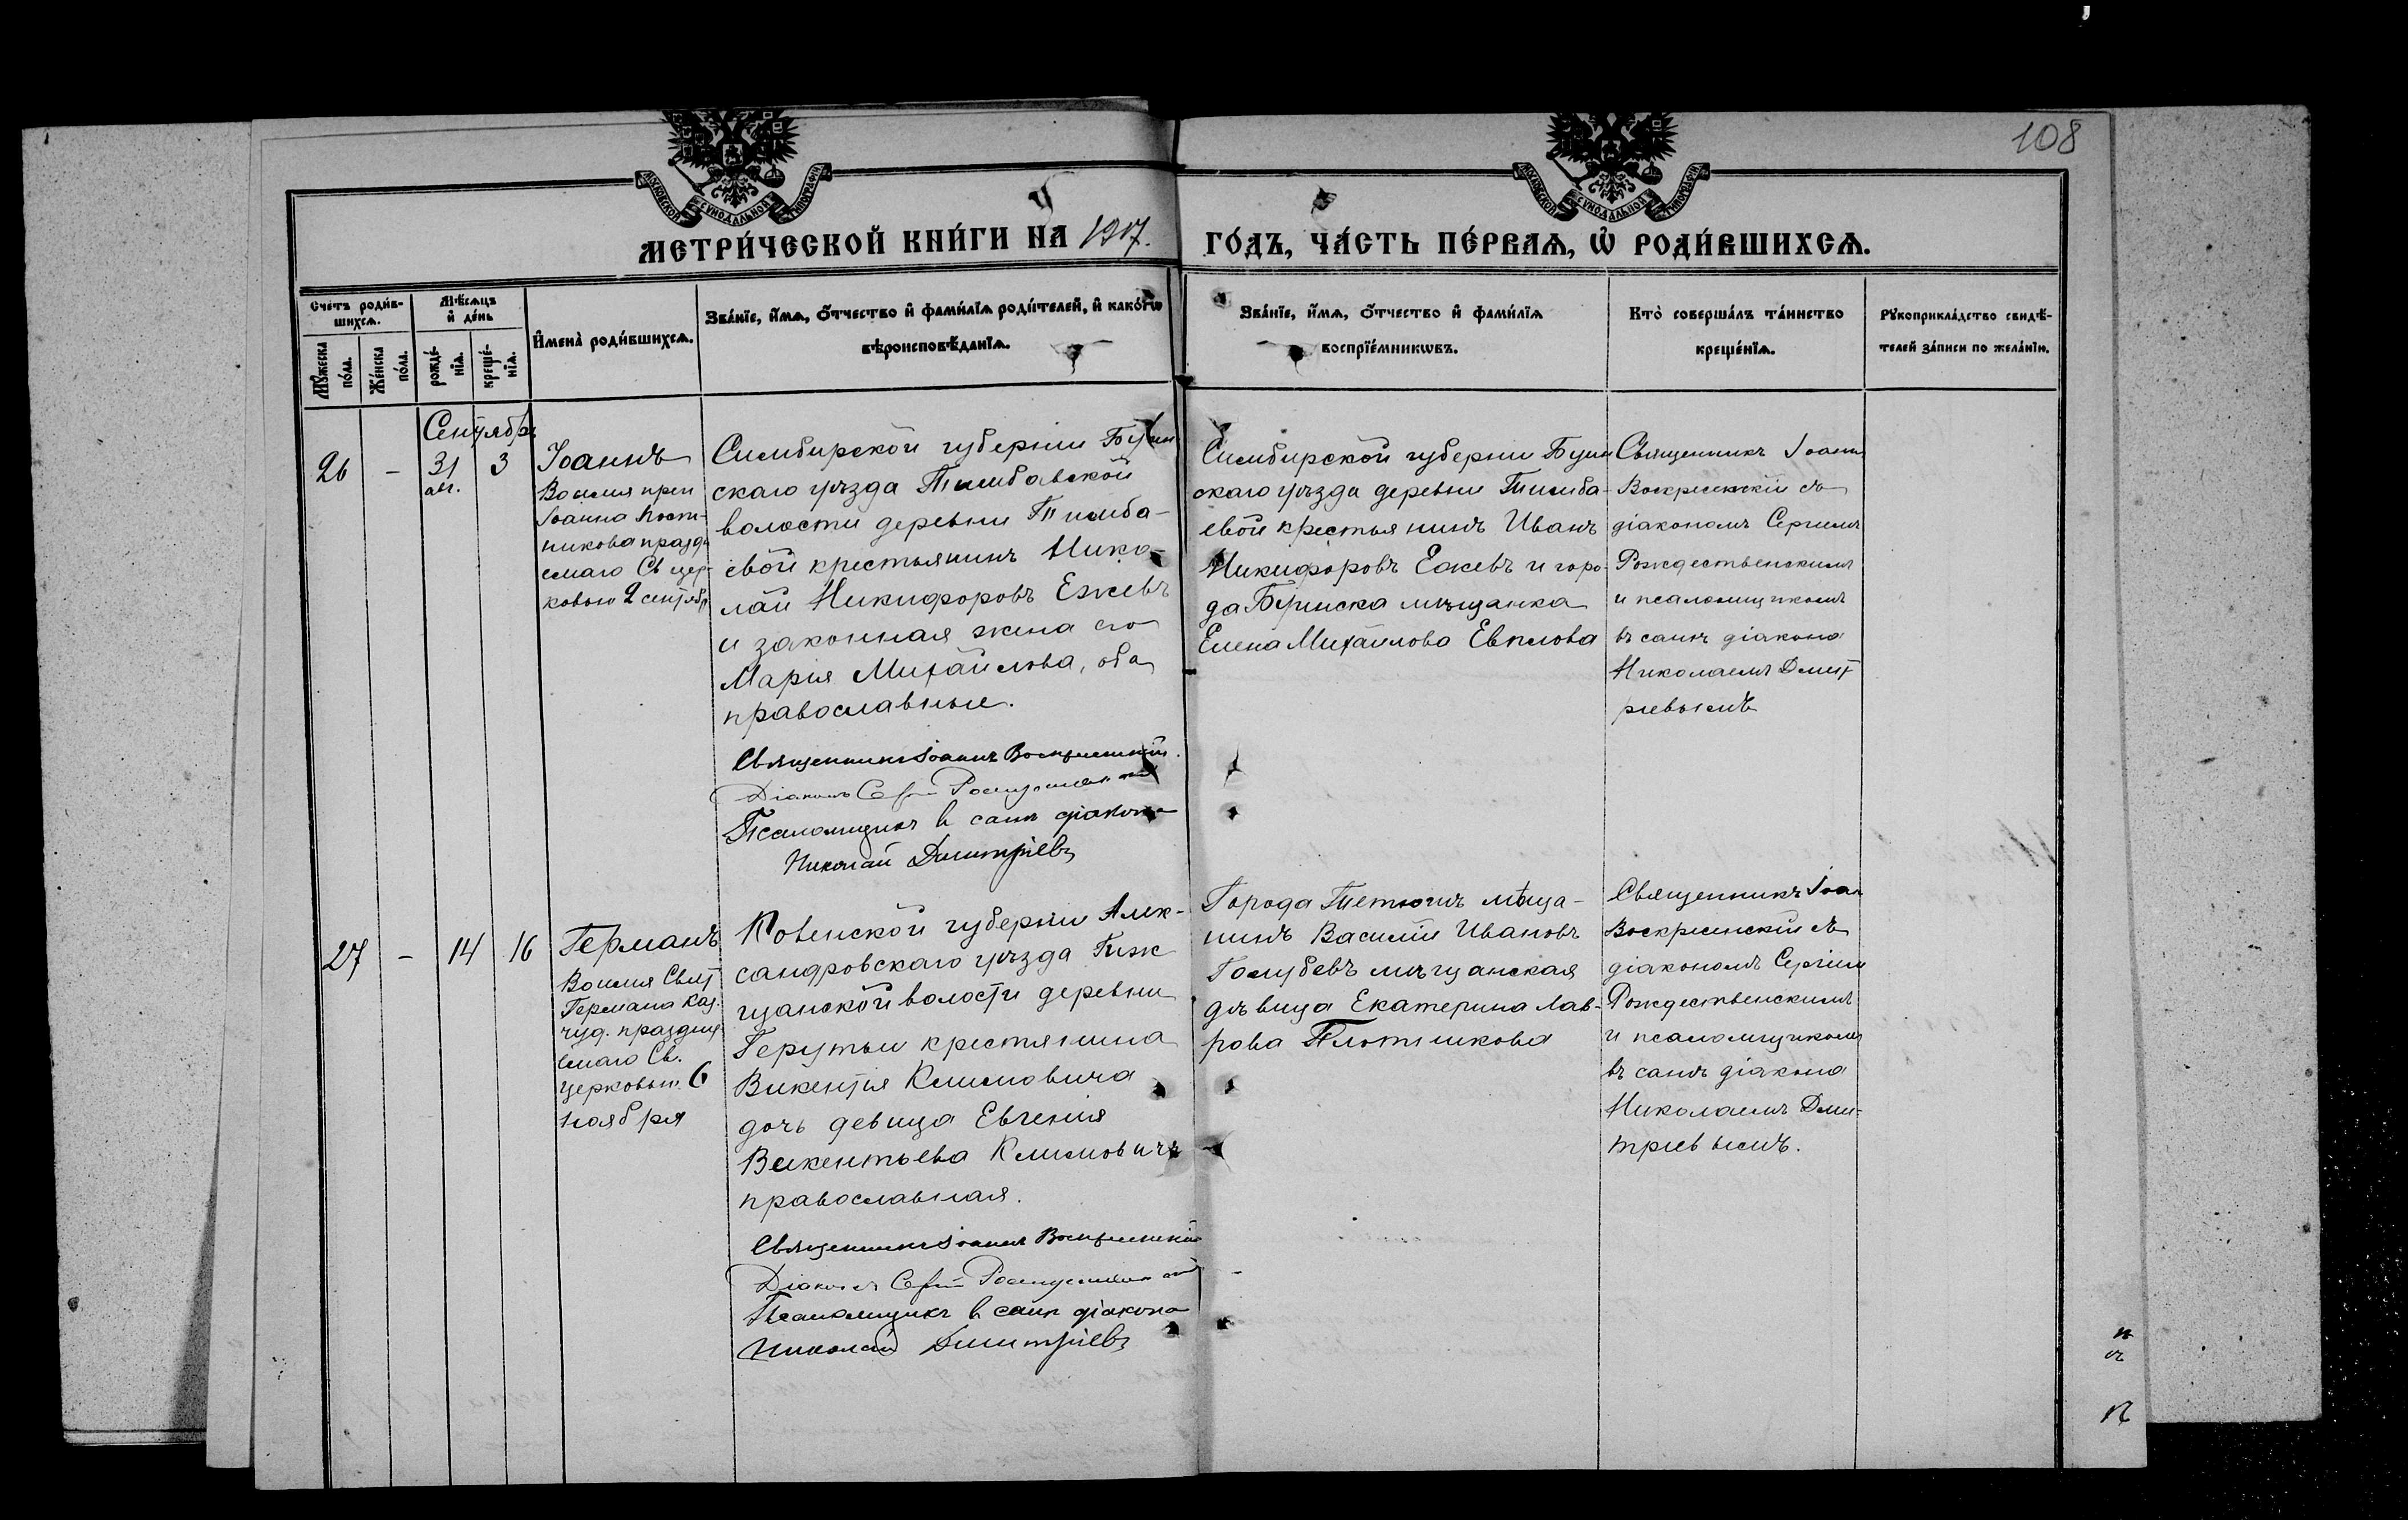 108
МОСКОВСКОЙ СѴНОДАЛЬНОЙ ТИПОГРАФІИ
МОСКОВСКОЙ СѴНОДАЛЬНОЙ ТИПОГРАФІИ
МЕТРИ́ЧЕСКОЙ КНИ́ГИ НА 1917. ГО́ДЪ, ЧА́СТЬ ПЕ́РВАѦ, Ѡ҆ РОДИ́ВШИХСѦ.
Сче́тъ роди́в-
шихсѧ.
Мѣ́сѧцъ
и҆ де́нь
Мꙋ́жеска
по́ла.
Же́нска
по́ла.
рожде́-
нїѧ.
креще́-
нїѧ.
И҆мена̀ роди́вшихсѧ.
Зва́нїе, и҆́мѧ, ѻ҆́тчество и҆ фами́лїѧ роди́телей, и҆ како́гѡ
вѣроисповѣ́данїѧ.
Зва́нїе, и҆́мѧ, ѻ҆́тчество и҆ фами́лїѧ
воспрїе́мникѡвъ.
Кто̀ соверша́лъ та́инство
креще́нїѧ.
Рꙋкоприкла́дство свидѣ́-
телей за́писи по жела́нїю.
Сентябрь
26
-
31
авг.
3
Іоаннъ
Во имя преп
Іоанна Пост-
никова праздн
емаго Св цер-
ковью 2 сентябр
Симбирской губерніи Буин
скаго уѣзда Тимбаевской
волости деревни Тимба-
евой крестьянинъ Нико-
лай Никифоровъ Ежевъ
и законная жена его
Марія Михайлова, оба
православные.
Священникъ Іоаннъ Воскресенскій.
Діаконъ Сергій Рождественскій
Псаломщикъ в санѣ діакона
Николай Дмитріевъ
Симбирской губерніи Буин
скаго уѣзда деревни Тимба-
евой крестьянинъ Иванъ
Никифоровъ Ежевъ и горо-
да Буинска мѣщанка
Елена Михайлова
Священникъ Іоаннъ
Воскресенскій съ
діакономъ Сергіемъ
Рождественскимъ
и псаломщикомъ
въ санѣ діакона
Николаемъ Дмит
ріевымъ
27
-
14
16
Германъ
Во имя Свят
Германа Каз.
чуд. праздну
емаго Св.
Церковью 6
ноября
Ковенской губерніи Алек-
сандровскаго уѣзда
волости деревни
Герутьи крестьянина
Викентія Климовича
дочь девица Евгенія
Викентьева Климовичъ
православная.
Священникъ Іоаннъ Воскресенскій
Діаконъ Сергій Рождественскій
Псаломщикъ в санѣ діакона
Николай Дмитріевъ
Города Тетюшъ мѣща-
нинъ Василій Ивановъ
Голубевъ мѣщанская
дѣвица Екатерина Лав-
рова Плотникова
Священникъ Іоан
Воскресенскій съ
діакономъ Сергіем
Рождественскимъ
и псаломщикомъ
въ санѣ діакона
Николаемъ Дми-
тріевымъ.